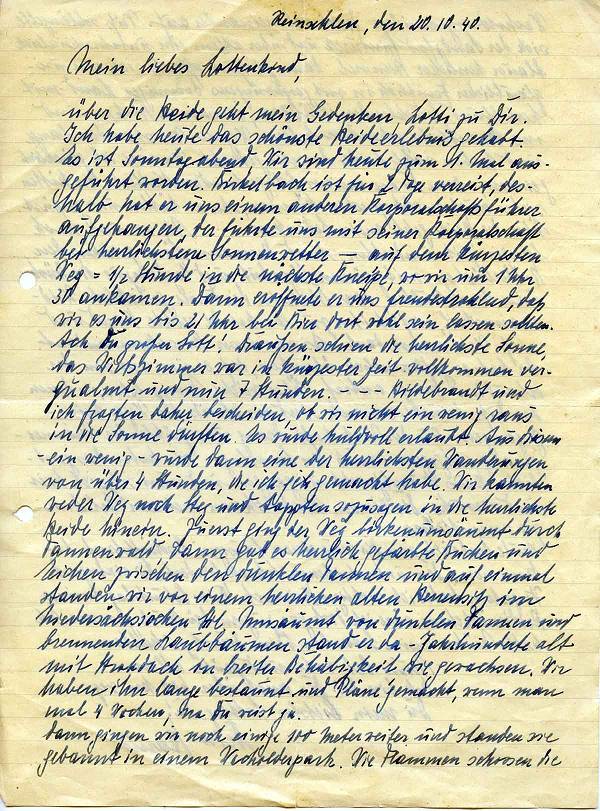 Reinsehlen, den 20.10.40.
Mein liebes Lottenkind,
über die Heide geht mein Gedenken, Lotti zu Dir.
Ich habe heute das schönste Heideerlebnis gehabt.
Es ist Sonntagabend. Wir sind heute zum 1. Mal aus-
geführt worden. Birkelbach ist für 2 Tage verreist, des-
halb hat er uns einem anderen Korporalschaftsführer
aufgehangen, der führte uns mit seiner Korporalschaft
bei herrlichstem Sonnenwetter – auf dem kürzesten
Weg = 1/2 Stunde in die nächste Kneipe, wo wir um 1 Uhr
30 ankamen. Dann eröffnete er uns freudestrahlend, daß
wir es uns bis 21 Uhr bei Bier dort wohl sein lassen sollten.
Ach du großer Gott! Draußen schien die herrlichste Sonne,
das Wirtszimmer war in kürzester Zeit vollkommen ver-
qualmt und nun 7 Stunden. - - - Hildebrandt und
ich fragten daher bescheiden, ob wir nicht ein wenig raus
in die Sonne dürften. Es wurde huldvoll erlaubt. Aus diesem
- ein wenig - wurde dann eine der herrlichsten Wanderungen
von über 4 Stunden, die ich je gemacht habe. Wir kannten
weder Weg noch Steg und tappten sozusagen in die herrlichste
Heide hinein. Zuerst ging der Weg birkenumsäumt durch
Tannenwald, dann gab es herrlich gefärbte Buchen und
Eichen zwischen den dunklen Tannen und auf einmal
standen wir vor einem herrlichen alten Bauernhof im
niedersächsischen Stil. Umsäumt von dunklen Tannen und
brennenden Laubbäumen stand er da - Jahrhunderte alt
mit Strohdach in breiter Behäbigkeit wie gewachsen. Wir
haben ihn lange bestaunt und Pläne gemacht, wenn man
mal 4 Wochen, na du weist ja.
Dann gingen wir noch einige 100 Meter weiter und standen wie
gebannt in einem Wacholderpark. Wie Flammen schossen die